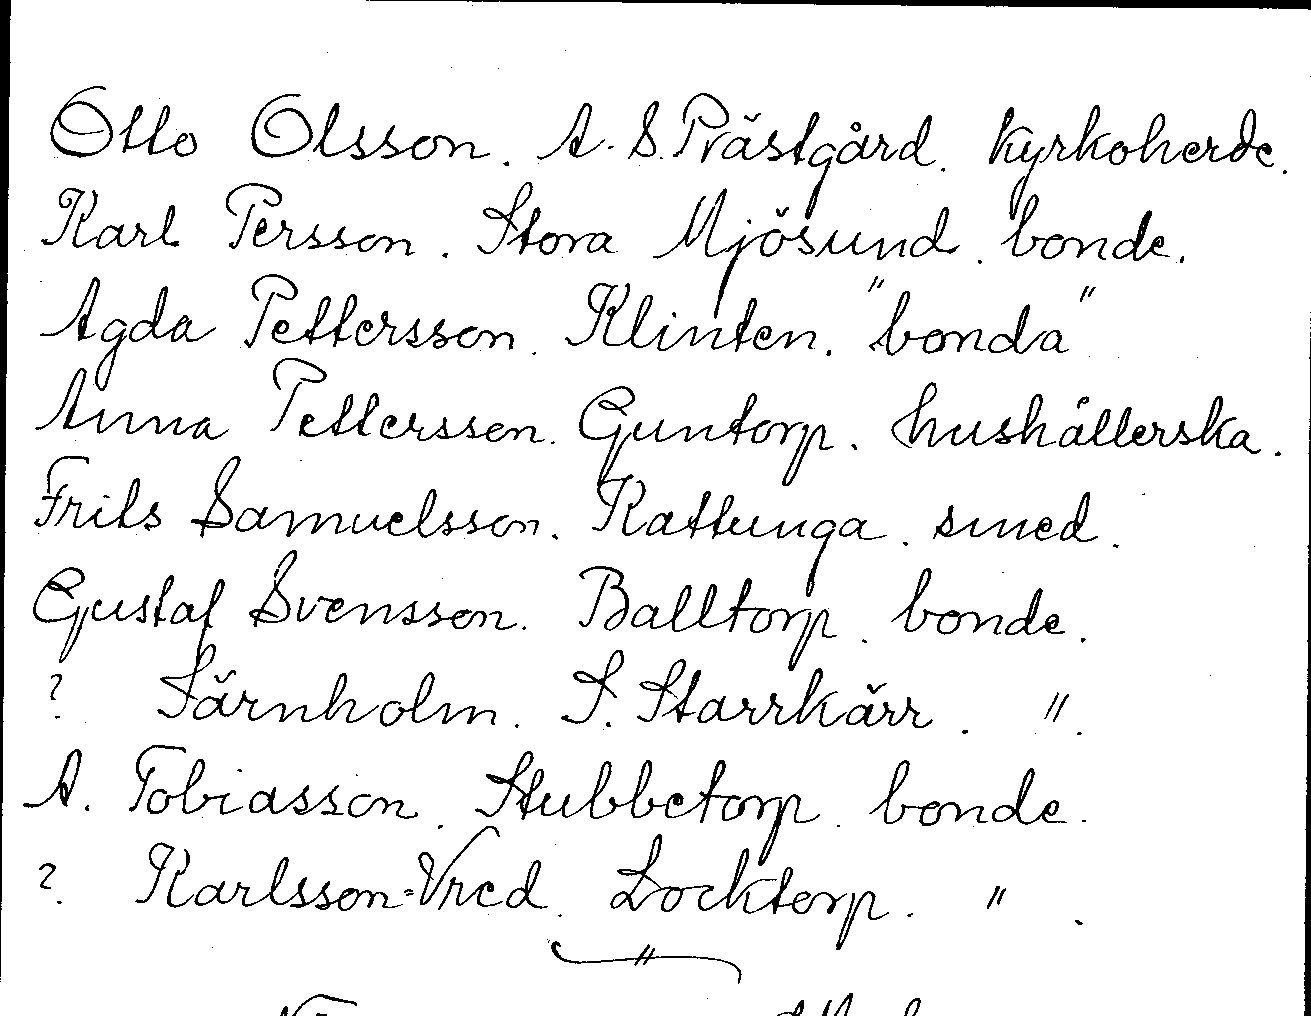 Otto Olsson. A. S. Prästgård. kyrkoherde.
Karl Persson. Stora Mjösund. bonde.
Agda Pettersson. Klinten. "bonda"
Anna Pettersson. Guntorp. hushållerska.
Frits Samuelsson. Kattunga. smed.
Gustaf Svensson. Balltorp. bonde.
? Särnholm. S. Starrkärr. ".
A. Tobiasson. Stubbetorp. bonde.
? Karlsson-Vred. Locktorp. " .